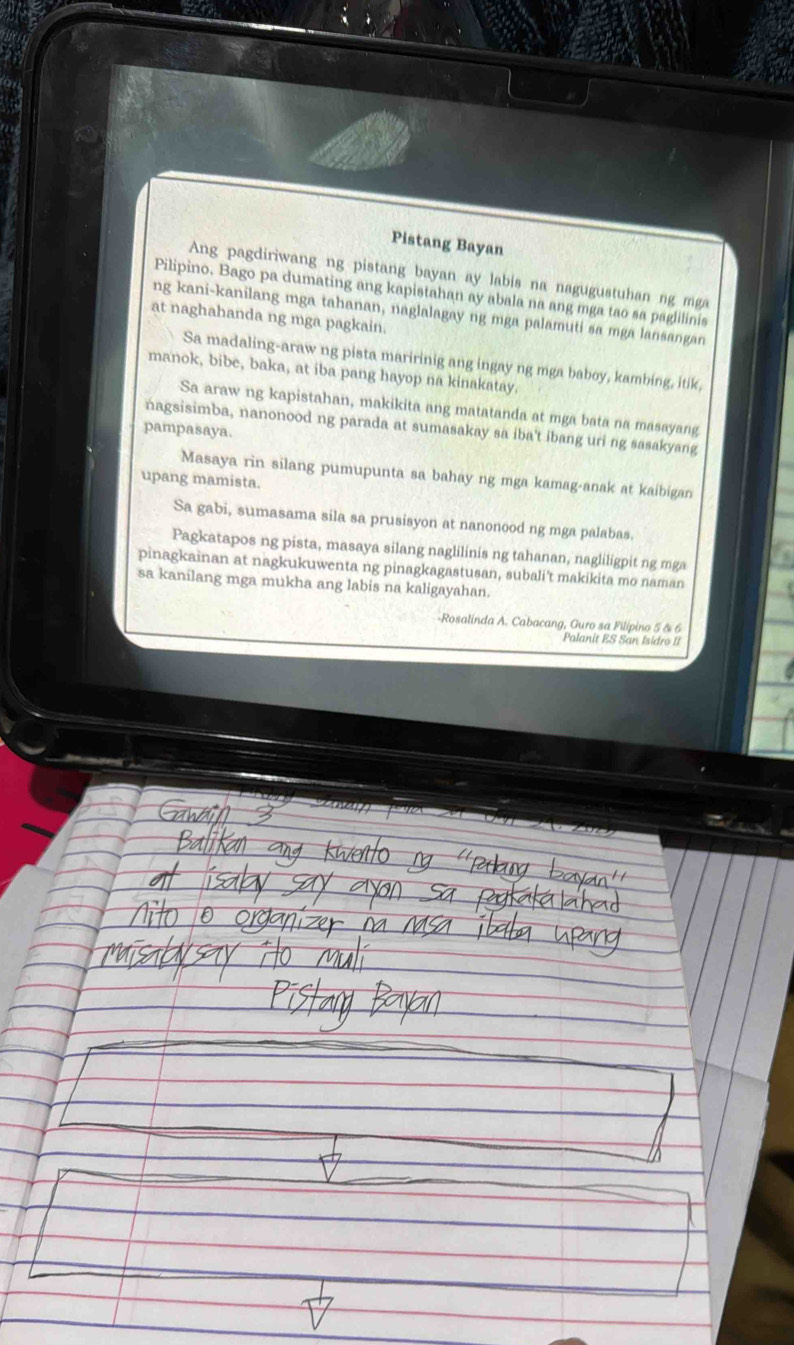 Pistang Bayan
Ang pagdiriwang ng pistang bayan ay labis na nagugustuhan ng mga
Pilipino. Bago pa dumating ang kapistahan ay abala na ang mga tao sa paglilinis
ng kani-kanilang mga tahanan, naglalagay ng mga palamuti sa mga lansangan
at naghahanda ng mga pagkain.
Sa madaling-araw ng pista maririnig ang ingay ng mga baboy, kambing, itik,
manok, bibe, baka, at iba pang hayop na kinakatay.
Sa araw ng kapistahan, makikita ang matatanda at mga bata na masayang
nagsisimba, nanonood ng parada at sumasakay sa iba't ibang uri ng sasakyang
pampasaya.
Masaya rin silang pumupunta sa bahay ng mga kamag-anak at kaibigan
upang mamista.
Sa gabi, sumasama sila sa prusisyon at nanonood ng mga palabas.
Pagkatapos ng pista, masaya silang naglilinis ng tahanan, nagliligpit ng mga
pinagkainan at nagkukuwenta ng pinagkagastusan, subali't makikita mo naman
sa kanilang mga mukha ang labis na kaligayahan.
-Rosalinda A. Cabacang, Guro sa Filipino 5 & 6
Palanit ES San Isidro II
Gawain 3
Balikan ang kwento ng "patang bayan"
at isalay say ayon sa pagkakalahad
nito organizer na nasa ibaba upang
maisalaysay ito muli
Pistang Bayan